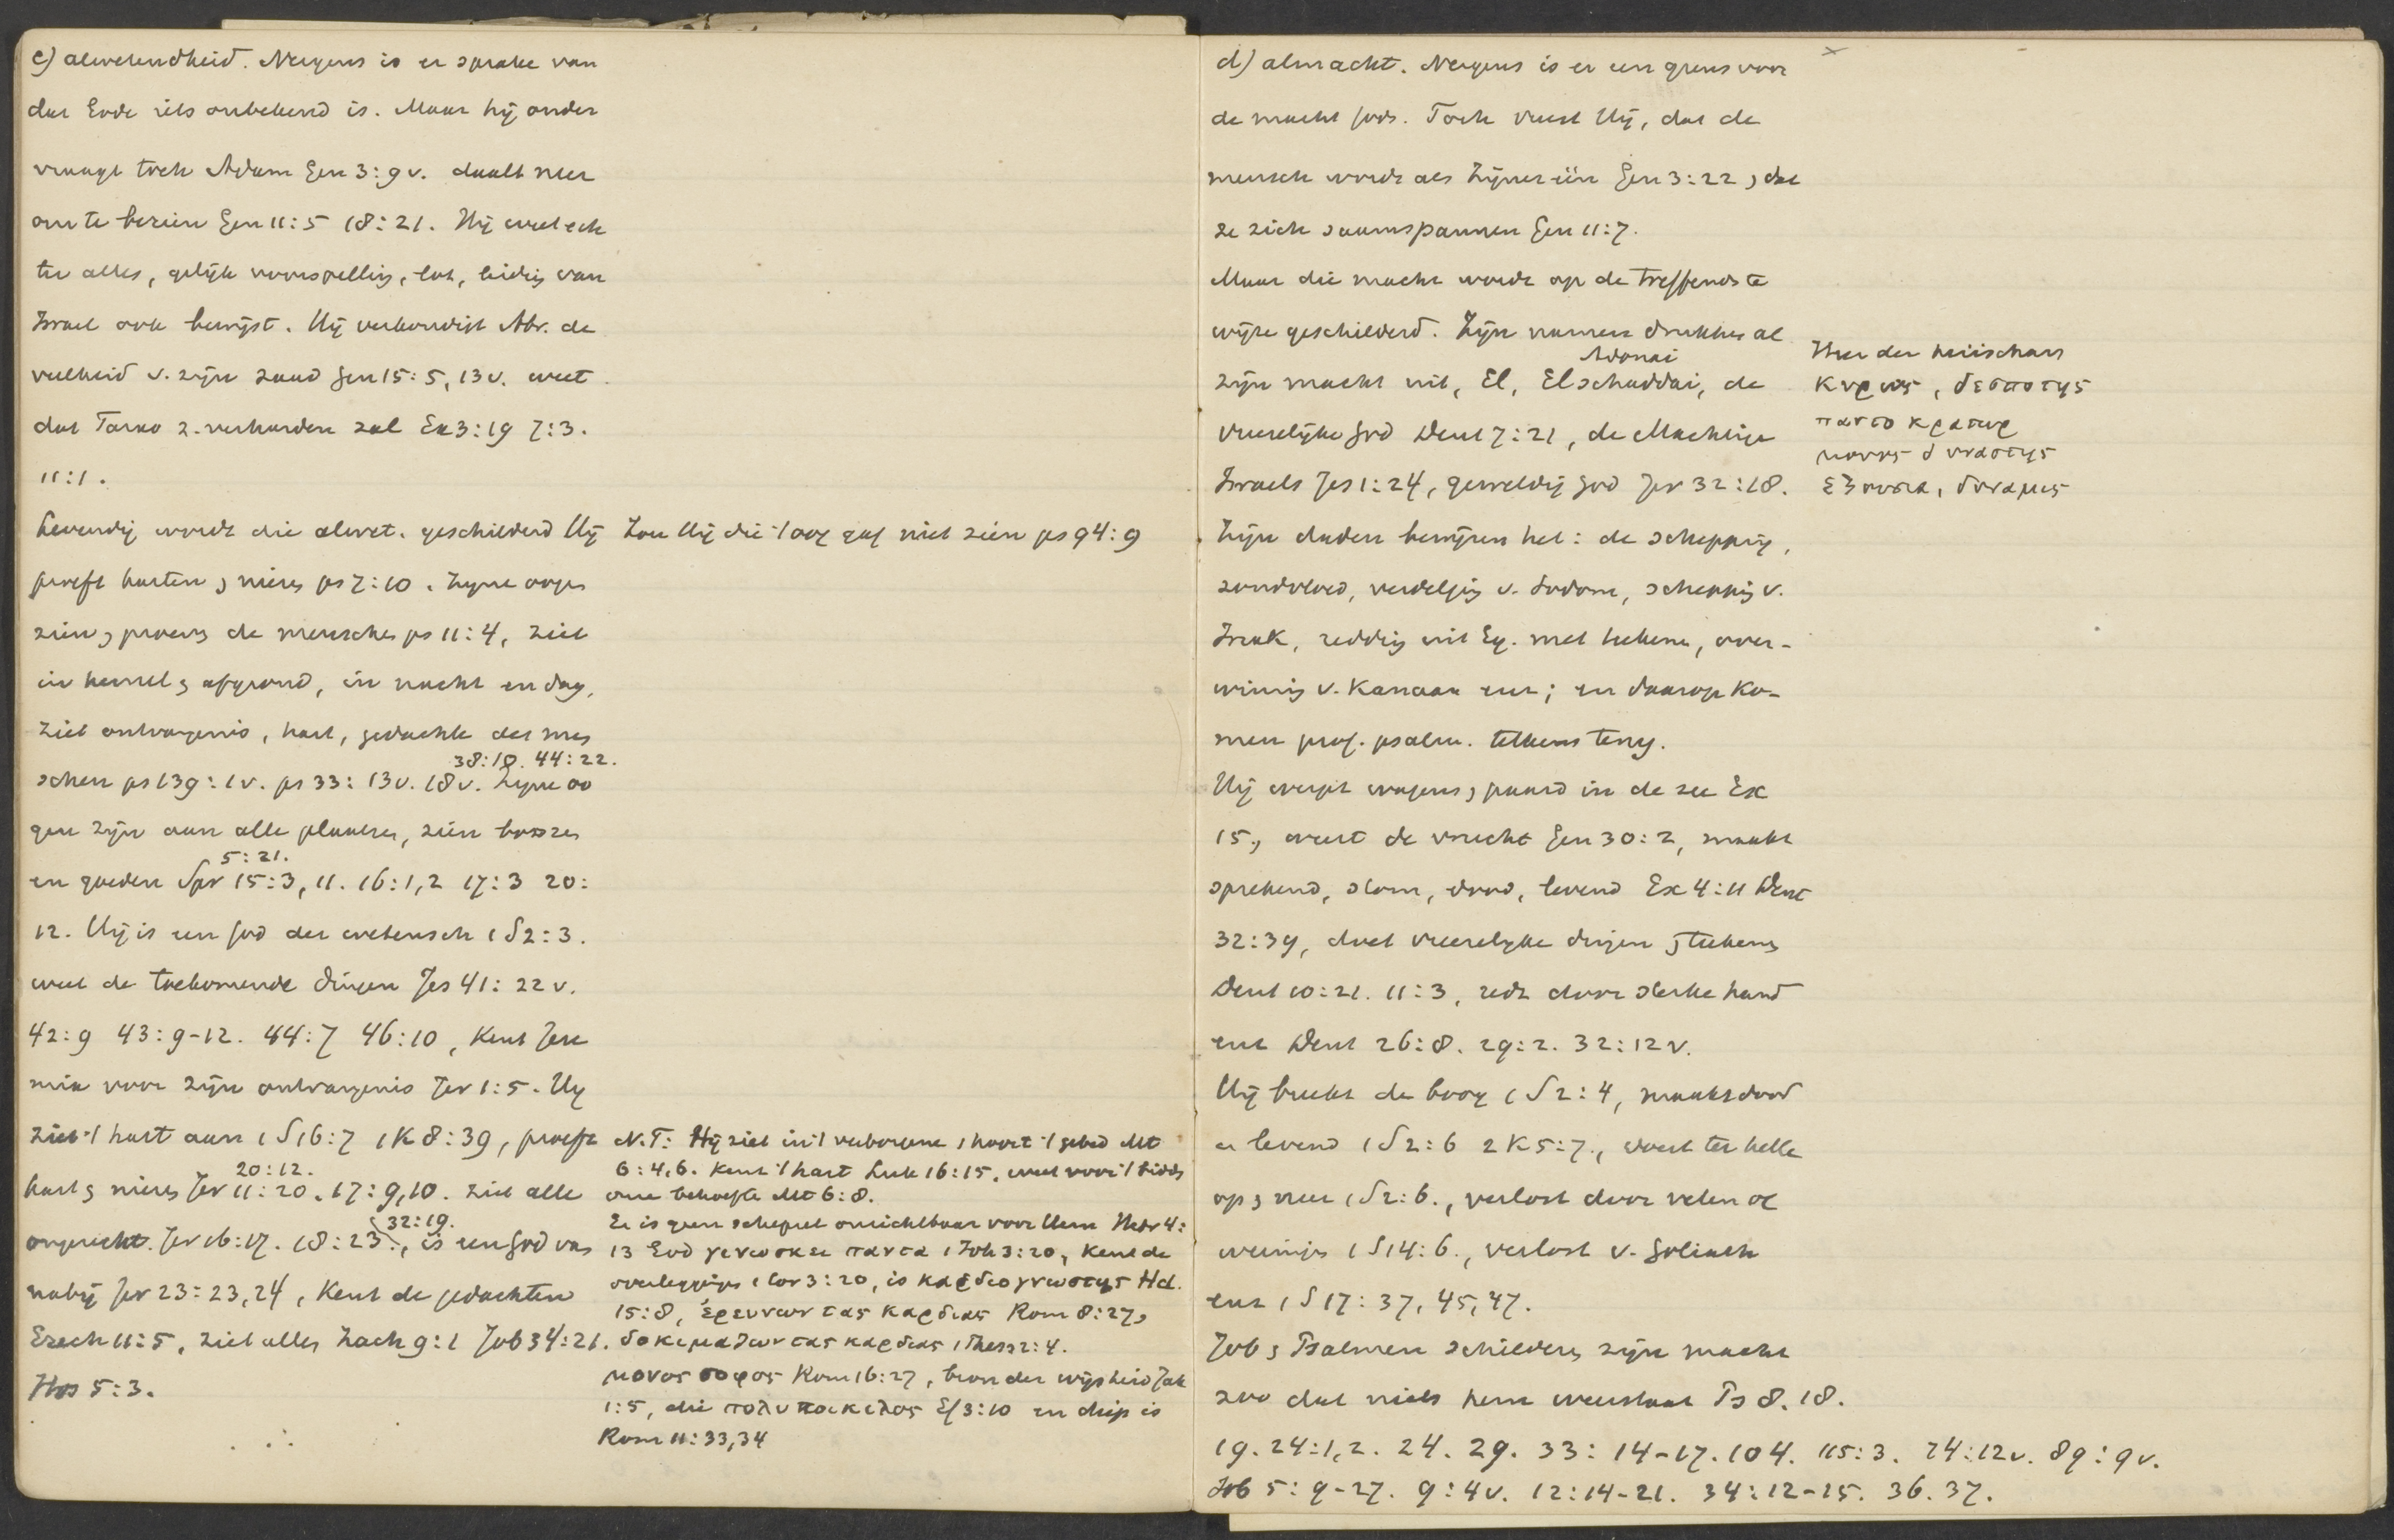 c) alwetendheid. Nergens is er sprake van
dat Gode iets onbekend is. Maar hij onder
vraagt toch Adam Gen 3:9v. daalt neer
om te bezien Gen 11:5 18:21. Hij weet ech
ter alles, gelijk voorspelling, lot, leiding van
Israel ook bewijst. Hij verkondigt Abr. de
veelheid v. zijn zaad Gen 15:5, 13v. weet
dat Farao z. verharden zal Ex 3:19 7:3.
11:1.
Levendig wordt die alwet. geschilderd Hij
proeft harten & nieren ps 7:10. Zijne oogen
zien & proeven de menschen ps 11:4, ziet
in hemel & afgrond, in nacht en dag,
ziet ontvangenis, hart, gedachte der men
38:10. 44:22.
schen ps 139:1v. ps 33:13v. 18v. Zijne oo
gen zijn aan alle plaatsen, zien boozen
5:21.
en goeden Spr 15:3, 11. 16:1,2 17:3 20:
12. Hij is een God der wetensch 1 S 2:3.
weet de toekomende dingen Jes 41:22v.
42:9 43:9-12. 44:7 46:10, Kent Jere
mia voor zijn ontvangenis Jer 1:5. Hij
ziet 't hart aan 1 S 16:7 1 K 8:39, proeft
20:12.
hart & nieren Jer 11:20. 17:9,10. ziet alle
32:19.
ongerecht. Jer 16:17. 18:23., is een God van
nabij Jer 23:23,24, Kent de gedachten
Ezech 11:5, ziet alles Zach 9:1 Job 34:21.
Hos 5:3.
Zou Hij die 't oog gaf niet zien ps 94:9
N.T: Hij ziet in 't verborgene, hoort 't gebed Mt
6:4,6. Kent 't hart Luk 16:15, weet voor 't bidden
onze behoefte Mt 6:8.
Er is geen schepsel onzichtbaar voor Hem Hebr 4:
13 God γινωσκει παντα 1 Joh 3:20, Kent de
overleggingen 1 Cor 3:20, is καρδιογνωστης Hd.
15:8, ἐρευνων τας καρδιας Rom 8:27,
δοκιμαζων τας καρδιας 1 Thess 2:4.
μονος σοφος Rom 16:27, bron der wijsheid Jak
1:5, die πολυποικιλος Ef 3:10 en diep is
Rom 11:33,34
d) almacht. Nergens is er een grens voor
de macht Gods. Toch vreest Hij, dat de
mensch wordt als Zijner één Gen 3:22, dat
ze zich saamspannen Gen 11:7.
Maar die macht wordt op de treffendste
wijze geschilderd. Zijn namen drukken al
Adonai
zijn macht uit, El, El schaddai, de
vreeselijke God Deut 7:21, de Machtige
Israels Jes 1:24, geweldig God Jer 32:18.
Zijn daden bewijzen het: de schepping,
zondvloed, verdelging v. Sodom, schepping v.
Izaak, redding uit Eg. met teekenen, over-
winning v. Kanaan enz; en daarop ko-
men prof. psalm. telkens terug.
Hij werpt wagens & paard in de zee Ex
15., weert de vrucht Gen 30:2, maakt
sprekend, stom, dood, levend Ex 4:11 Deut
32:39, doet vreeselijke dingen & teekens
Deut 10:21. 11:3, redt door sterke hand
enz Deut 26:8. 29:2. 32:12v.
Hij breekt de boog 1 S 2:4, maakt dood
en levend 1 S 2:6 2 K 5:7., voert ter helle
op & neer 1 S 2:6., verlost door velen of
weinigen 1 S 14:6., verlost v. Goliath
enz 1 S 17:37, 45, 47.
Job & Psalmen schilderen zijn macht
zoo dat niets hem weerstaat Ps 8. 18.
19. 24:1,2. 24. 29. 33:14-17. 104. 115:3. 74:12v. 89:9v.
Job 5:9-27. 9:4v. 12:14-21. 34:12-15. 36. 37.
Heer der heirscharen
κυριος, δεσποτης
παντοκρατωρ
μονος δυναστης
εξουσια, δυναμις